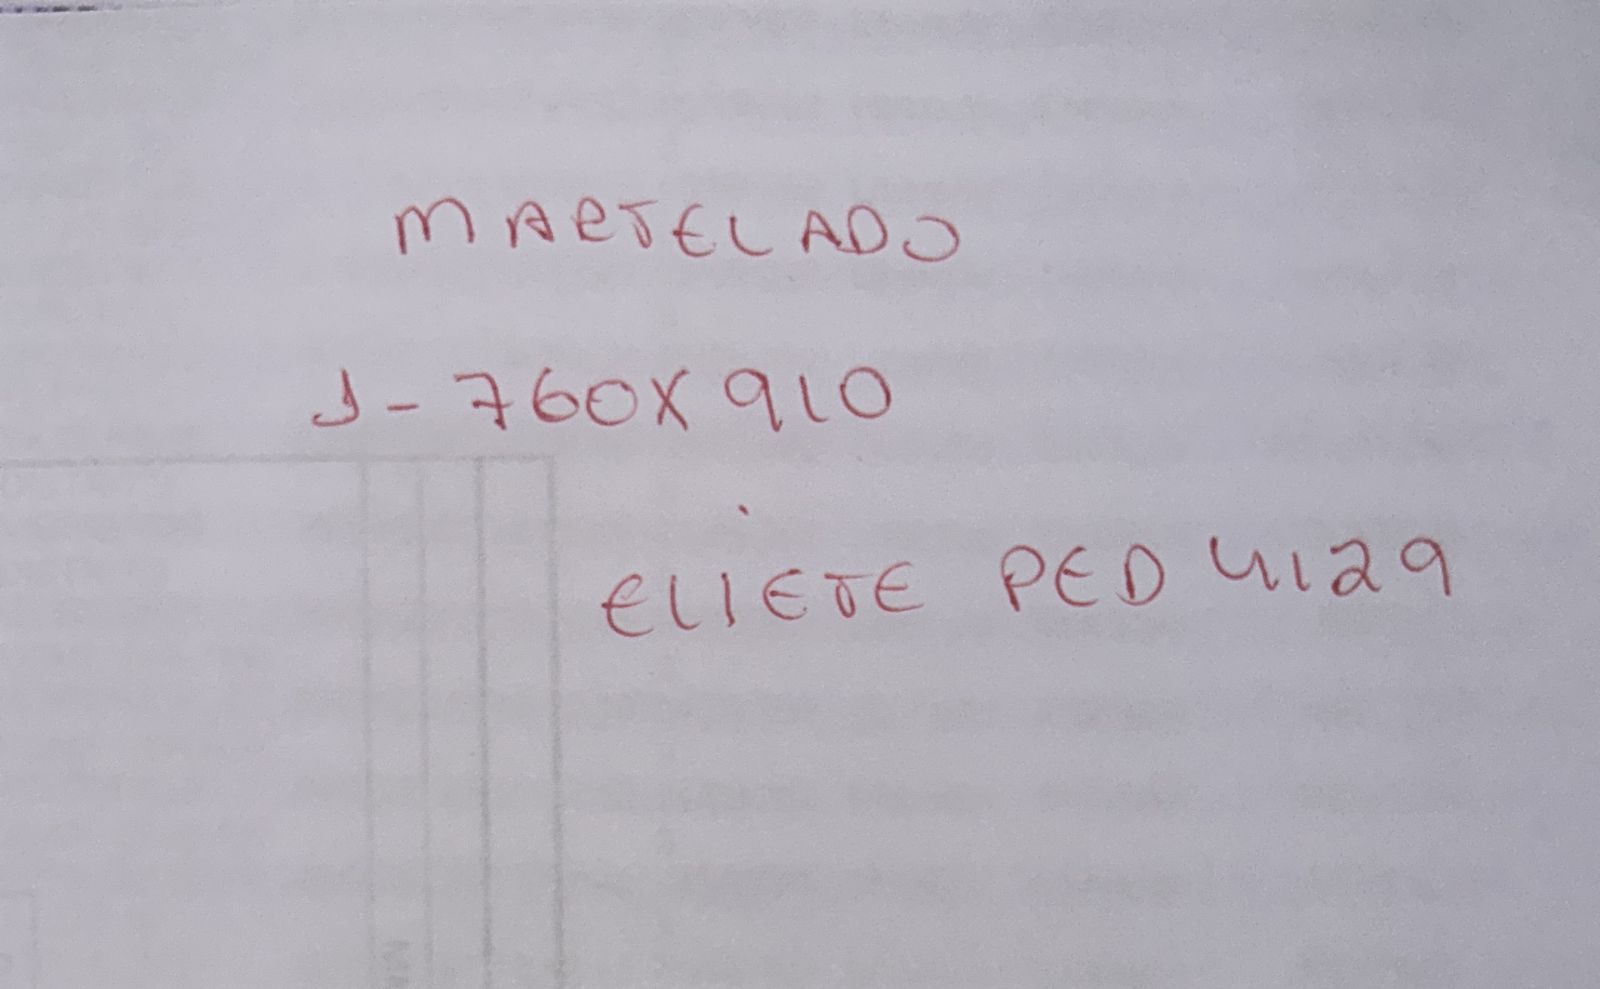 MARTELADO
1-760X910
ELIETE PED 4129